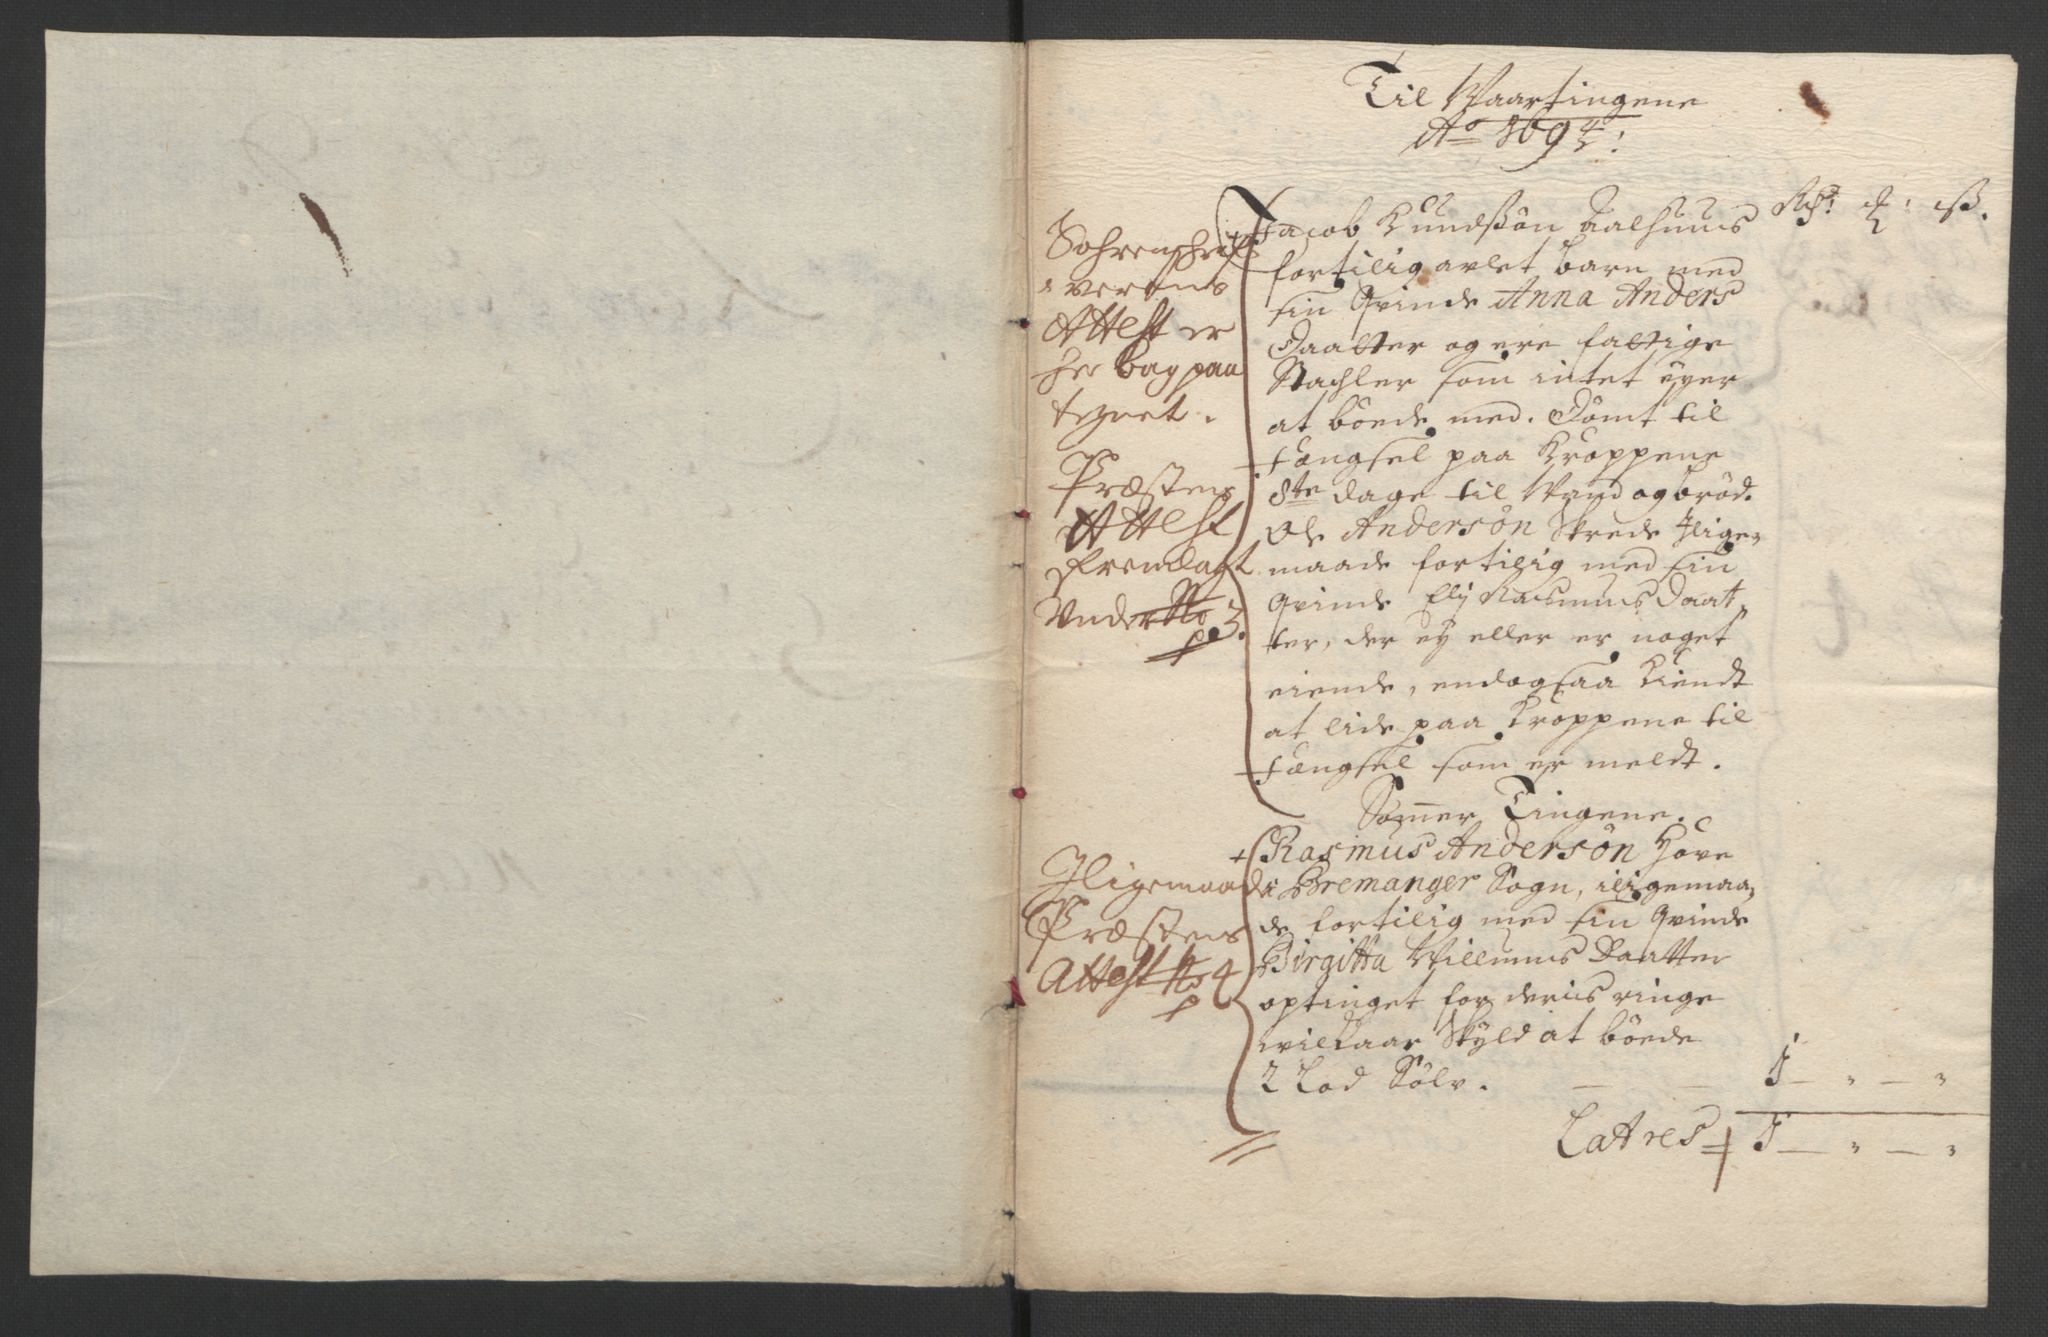 Til Waartingene
Ao 1694:
Rdr: ₰: ß.
Sohrenschrif
verens
Attest er
her bag paa
tegnet.
Præstens
Attest
fremlagt
Under No 3.
Jacob Knudssøn Aalhuus
fortilig avlet barn med
sin Qvinde Anna Anders
Daatter og ere fattige
Stachler som intet eyer
at bøede med. Dømt til
fængsel paa Kroppene
8te dage til Wand og brød.
Ole Andersøn Skrede Jlige,,
maade fortilig med sin
Qvinde Elj Rasmus Daat,,
ter, der ey eller er noget
eiende, endogsaa kiendt
at lide paa Kroppene til
fængsel som er meldt.
Somer Tingene.
Jligemaade
Præstens
Attest No 4
Rasmus Andersøn Hove
i Bremanger Sogn, iligemaa,,
de fortilig med sin Qvinde
Birgitta Willums Daatter
optinget for deris ringe
wilkaar Skyld at bøede
2 Lod Sølv. — — 1 — „ — „
LatAres 1 — „ — „